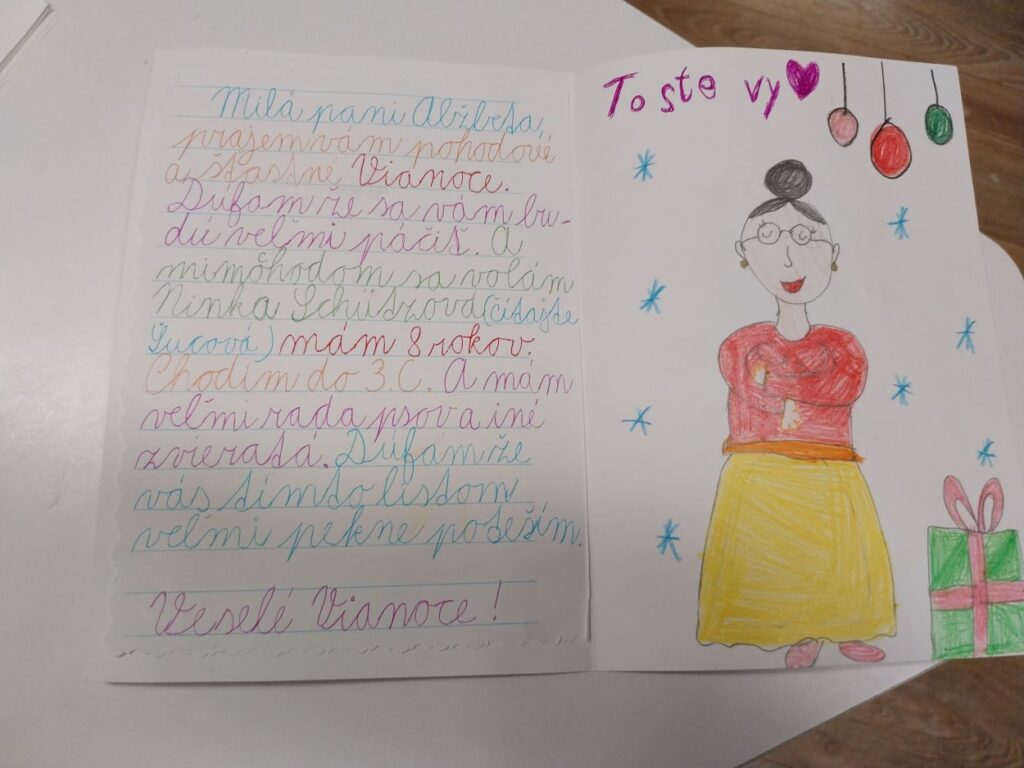 Milá pani Alžbeta,
prajem vám pohodové
a šťastné Vianoce.
Dúfam že sa vám bu-
dú veľmi páčiť. A
mimôhodom sa volám
Ninka Schützová (čítajte
Šucová) mám 8 rokov.
Chodím do 3.C. A mám
veľmi rada psov a iné
zvieratá. Dúfam že
vás tímto listom
veľmi pekne poteším.
Veselé Vianoce!
To ste vy